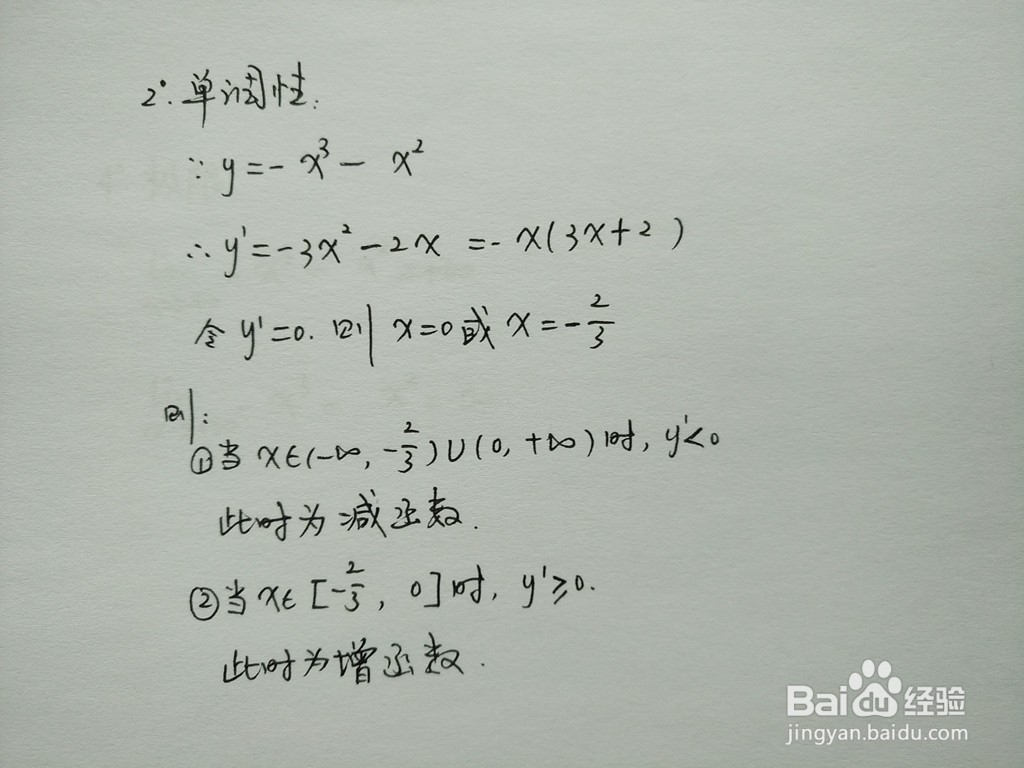 2°. 单调性:
∵ y = - x³ - x²
∴ y' = -3x² - 2x = - x(3x+2)
令 y'=0. 则 x=0 或 x = -2/3
则:
①当 x∈(-∞, -2/3)∪(0, +∞)时, y'<0
此时为减函数.
②当 x∈[-2/3, 0]时, y'≥0.
此时为增函数.
Baidu经验
jingyan.baidu.com